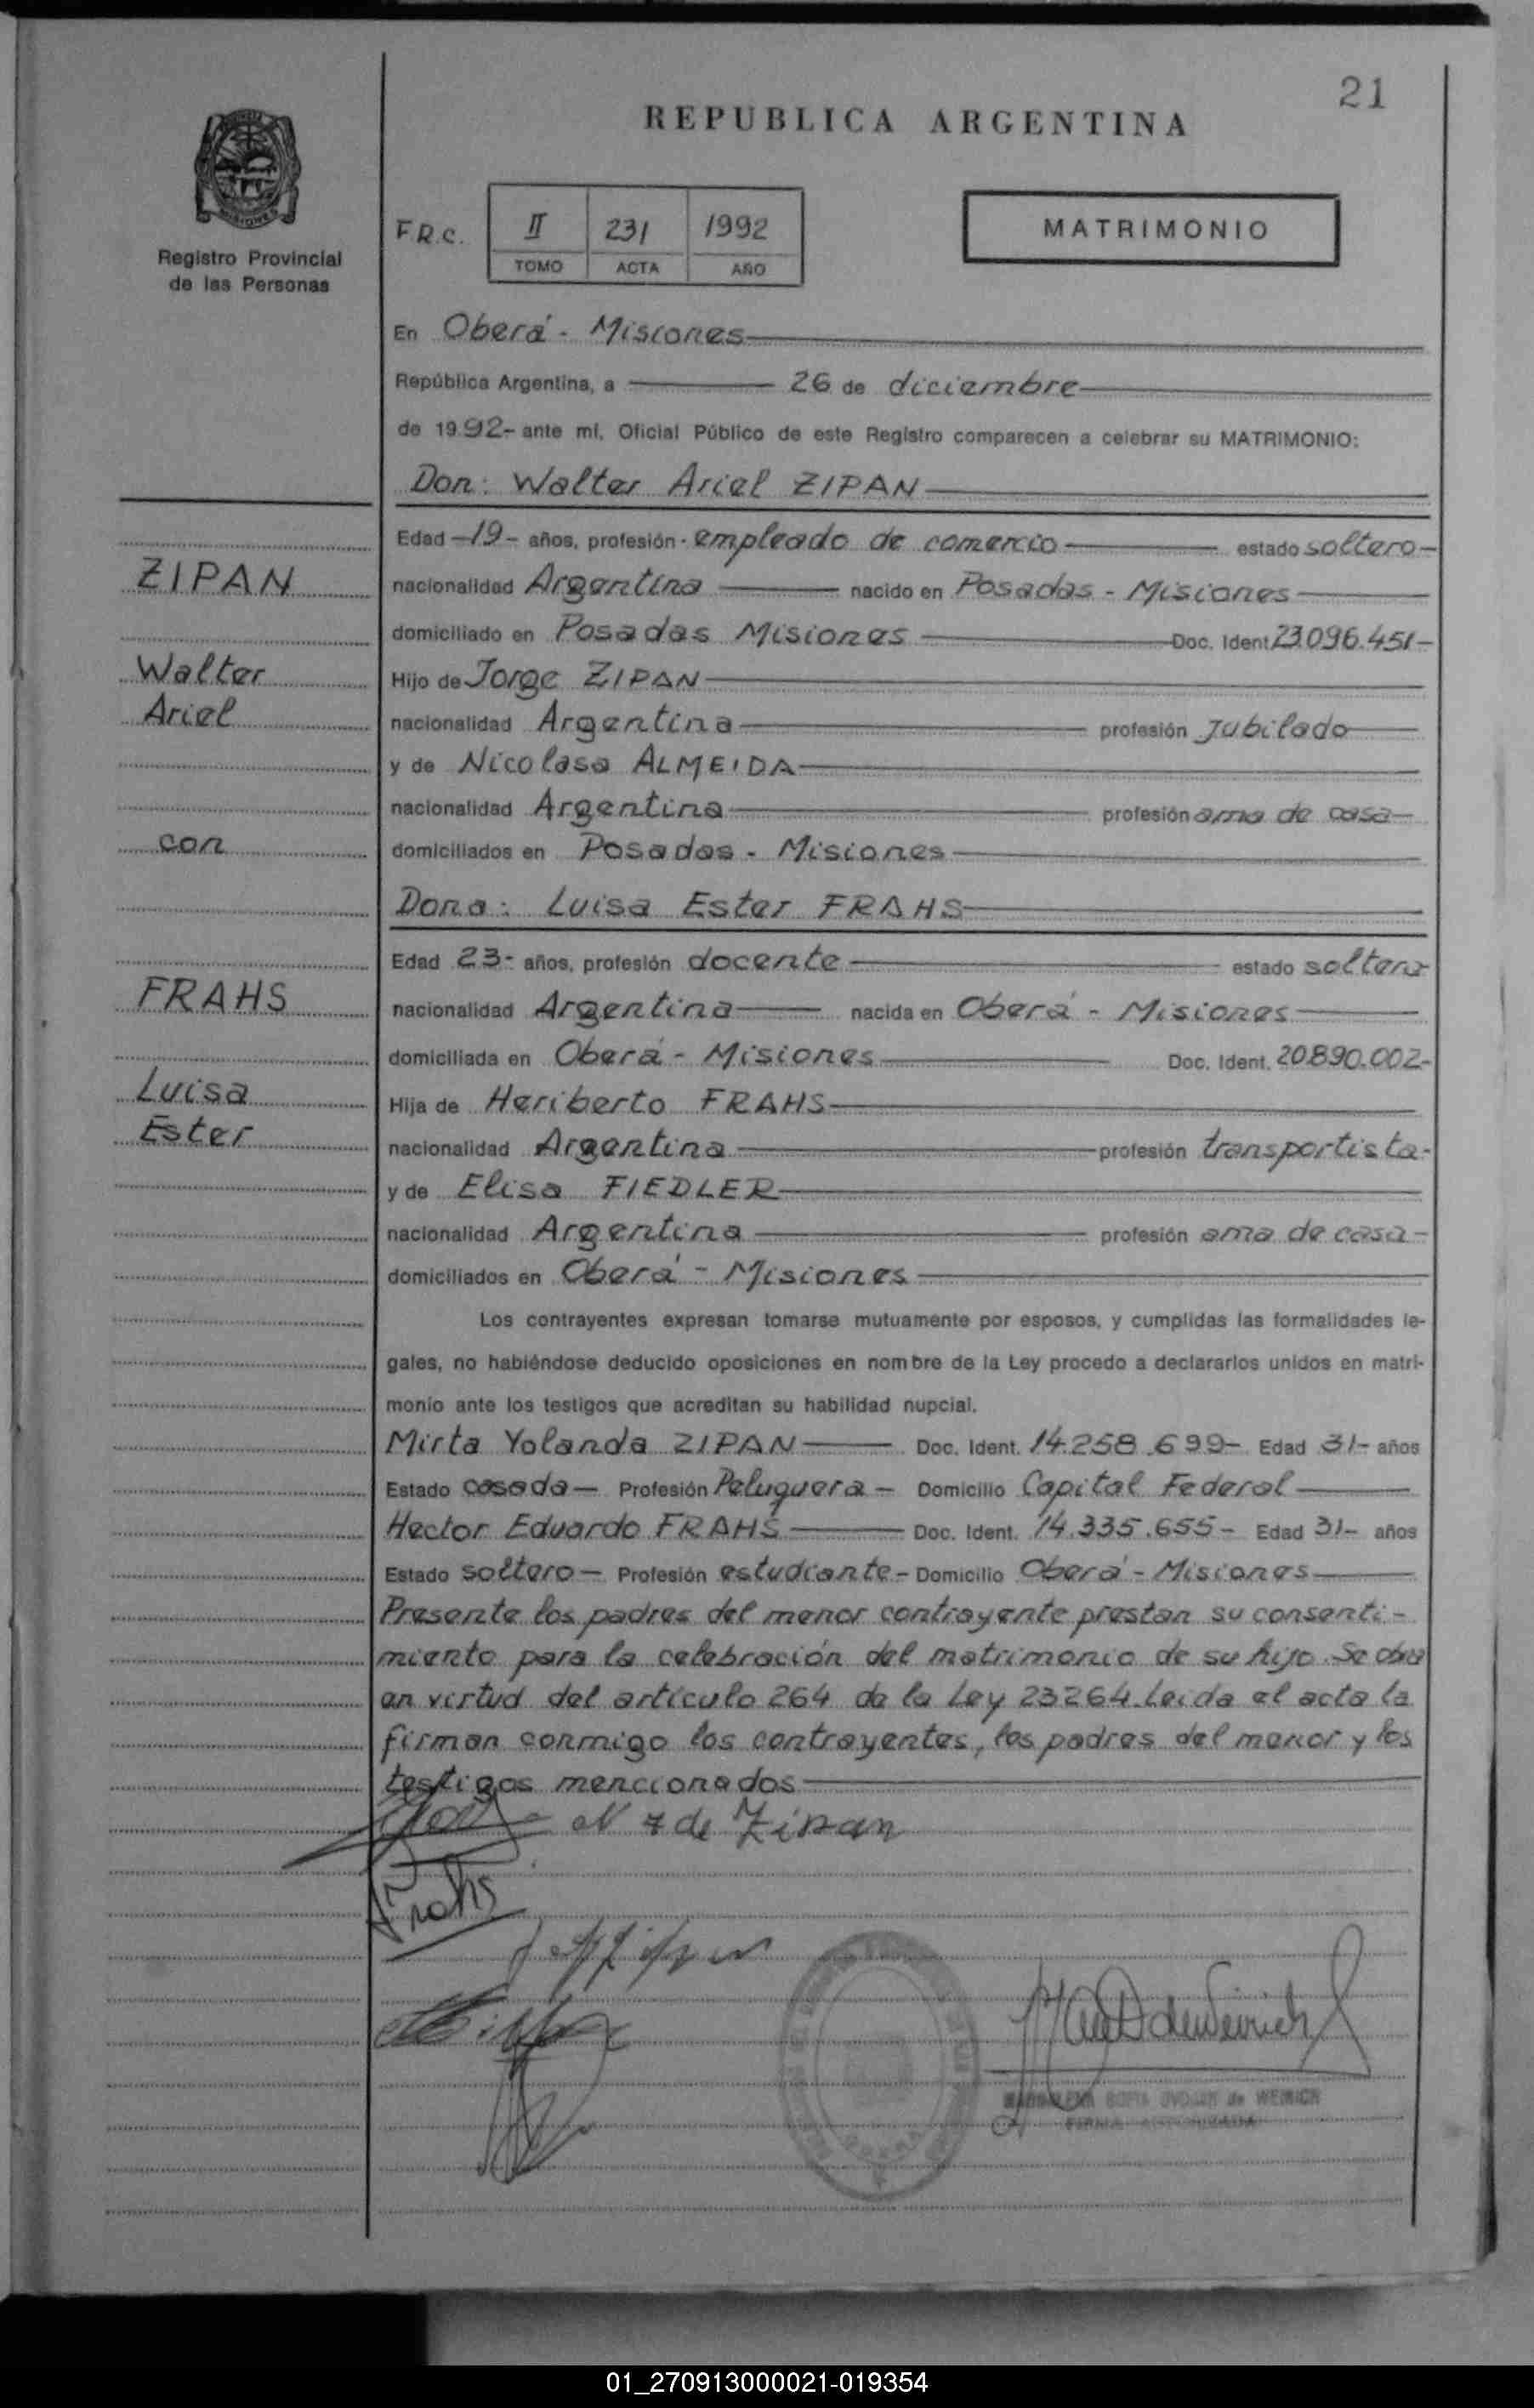 21
REPUBLICA ARGENTINA
MISIONES
Registro Provincial
de las Personas
F.R.C. II 231 1992
TOMO ACTA AÑO
MATRIMONIO
En Oberá - Misiones
República Argentina, a 26 de diciembre
de 1992- ante mí, Oficial Público de este Registro comparecen a celebrar su MATRIMONIO:
Don: Walter Ariel ZIPAN
Edad -19- años, profesión - empleado de comercio estado soltero-
ZIPAN
nacionalidad Argentina nacido en Posadas - Misiones
domiciliado en Posadas Misiones Doc. Ident 23.096.451-
Walter
Hijo de Jorge ZIPAN
Ariel
nacionalidad Argentina profesión Jubilado
y de Nicolasa ALMEIDA
nacionalidad Argentina profesión ama de casa
con
domiciliados en Posadas - Misiones
Dona: Luisa Ester FRAHS
Edad 23- años, profesión docente estado soltera
FRAHS
nacionalidad Argentina nacida en Oberá - Misiones
domiciliada en Oberá - Misiones Doc. Ident. 20.890.002-
Luisa
Hija de Heriberto FRAHS
Ester
nacionalidad Argentina profesión transportista-
y de Elisa FIEDLER
nacionalidad Argentina profesión ama de casa-
domiciliados en Oberá - Misiones
Los contrayentes expresan tomarse mutuamente por esposos, y cumplidas las formalidades le-
gales, no habiéndose deducido oposiciones en nombre de la Ley procedo a declararlos unidos en matri-
monio ante los testigos que acreditan su habilidad nupcial.
Mirta Yolanda ZIPAN Doc. Ident. 14.258.699- Edad 31- años
Estado casada- Profesión Peluquera- Domicilio Capital Federal
Hector Eduardo FRAHS Doc. Ident. 14.335.655- Edad 31- años
Estado soltero- Profesión estudiante- Domicilio Oberá - Misiones
Presente los padres del menor contrayente prestan su consenti-
miento para la celebración del matrimonio de su hijo. Se obra
en virtud del artículo 264 de la Ley 23264. Leida el acta la
firman conmigo los contrayentes, los padres del menor y los
testigos mencionados
de Zipan
Frahs
de WEIRICH
FIRMA AUTORIZADA
01_270913000021-019354